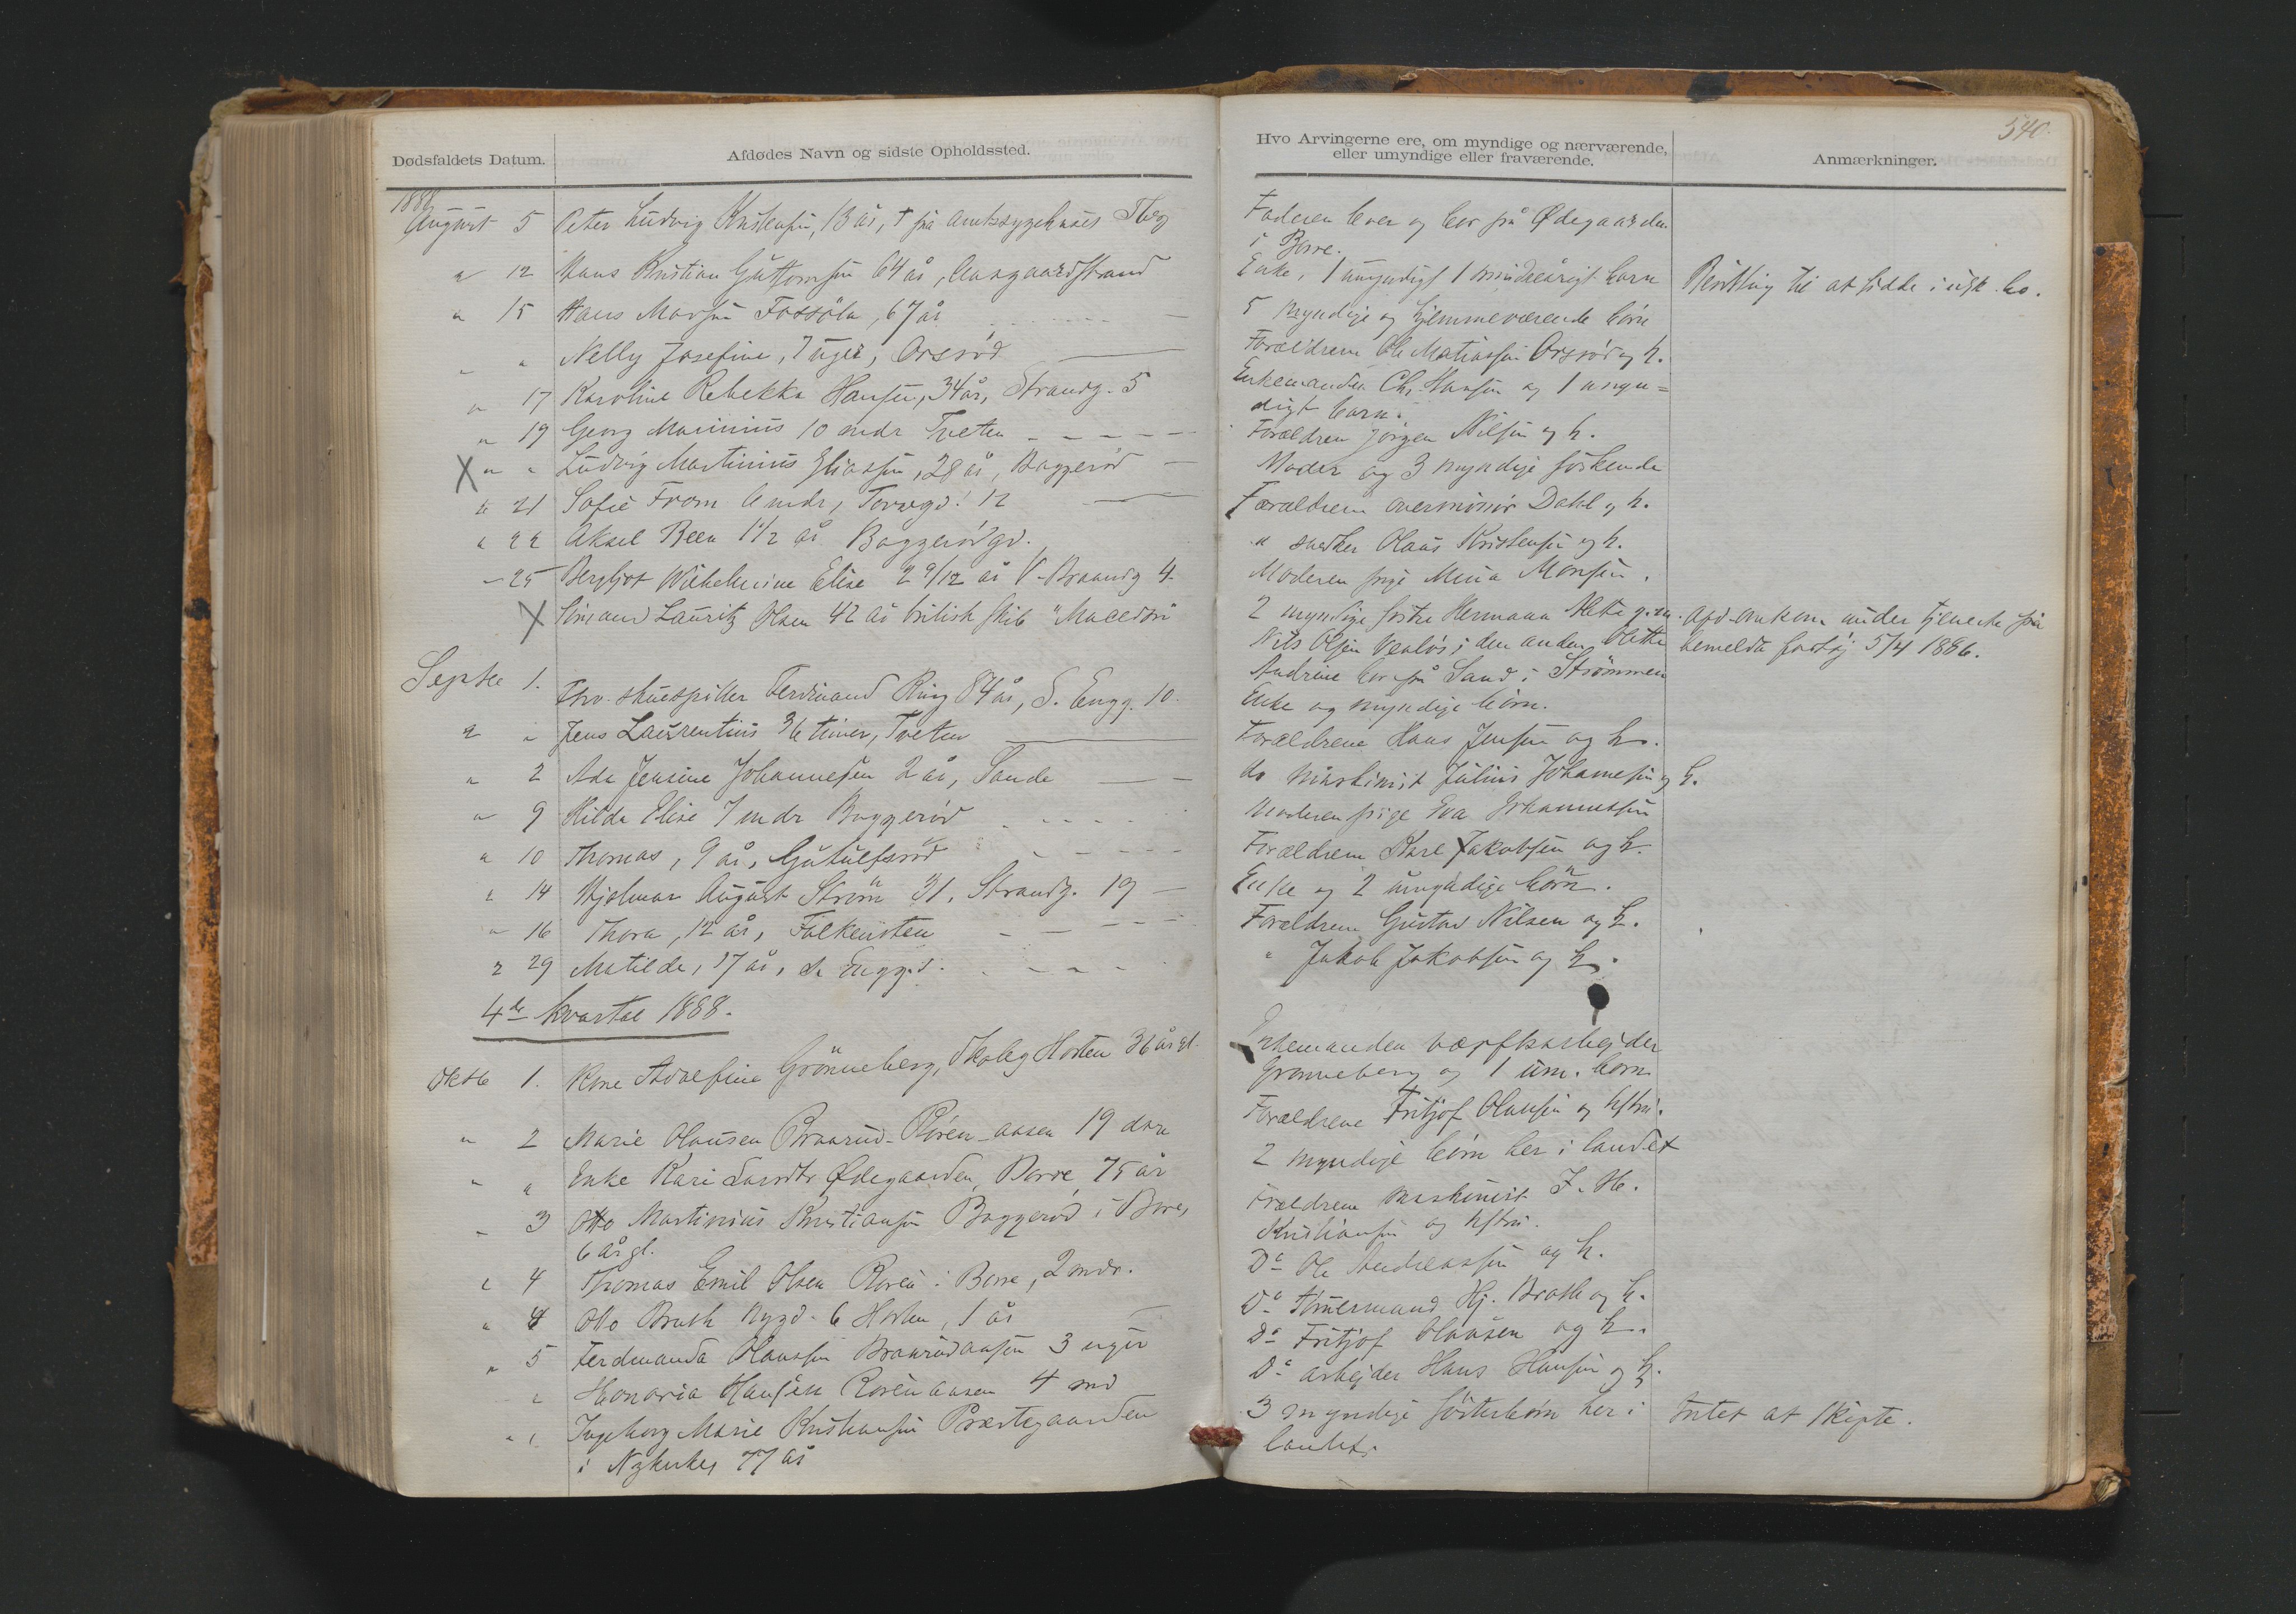 540.
Dødsfaldets Datum.
Afdødes Navn og sidste Opholdssted.
Hvo Arvingerne ere, om myndige og nærværende,
eller umyndige eller fraværende.
Anmærkninger.
1888
August 5 Peter Ludvig Kristensen, 13 år, † på amtssygehuset Tbg
Faderen lever og bor på Ødegaarden
i Borre.
" 12 Hans Kristian Guttormsen 64 år, Aasgaardstrand
Enke, 1 umyndigt 1 mindreårigt barn
Bevilling til at sidde i usk. bo.
" 15 Hans Monsen Fossøla, 67 år
5 myndige og hjemmeværende børn
" " Nelly Josefine, 7 uger, Orsrød
Forældrene Ole Matiassen Orsrød og h.
" 17 Karoline Rebekka Hansen, 34 år, Strandg. 5
Enkemanden Ch. Hansen og 1 umyn=
digt barn.
" 19 Georg Marinius 10 mdr Tveten
Forældrene Jörgen Nilsen og h.
X " " Ludvig Martinius Eliassen, 28 år, Baggerød
Moder og 3 myndige söskende
" 21 Sofie From 6 mdr, Torvegd. 12
Forældrene overminør Dahl og h.
" 22 Aksel Reen 1 1/2 år Baggerødgd.
" snedker Olaus Kristensen og h.
" 25 Bergljot Wilhelmine Elise 2 9/12 år V. Braarudg 4
Moderen pige Mina Monsen.
X Sömand Lauritz Olsen 42 år britisk skib "Macedon"
2 myndige söstre Hermana Mette g. m.
Nils Olsen Vealös; den anden Olette
Andrine bor på Sand i Strömmen
Afd. omkom under tjeneste på
bemeldte fartöj 5/4 1886.
Septbr 1. Fhv. skuespiller Ferdinand Ring 84 år, S. Engg. 10.
Enke og myndige börn.
" " Jens Laurentius 36 timer, Tveten
Forældrene Hans Jensen og h.
" 2 Ada Jensine Johannesen 2 år, Sande
do maskinist Julius Johannesen og h.
" 9 Hilda Elise 7 mdr Baggerød
Moderen pige Eva Johannessen
" 10 Thomas, 9 år, Gutulfsrød
Forældrene Karl Jakobsen og h.
" 14 Hjalmar August Ström 31, Strandg. 19
Enke og 2 umyndige börn.
" 16 Thora, 12 år, Falkensten
Forældrene Gustav Nilsen og h.
" 29 Matilde, 17 år,
" Jakob Jakobsen og h.
4de kvartal 1888.
Oktb 1. Kone Adolfine Grönneberg, Skoleg Horten 36 år gl.
Enkemanden værftsarbejder
Grønneberg og 1 um. barn
" 2 Marie Olausen Braarud-Rören-aasen 19 dage
Forældrene Fritjof Olausen og hstru.
" " Enke Kari Larsdtr Ødegaarden, Borre, 75 år
2 myndige börn her i landet
" 3 Otto Martinius Kristiansen Baggerød i Borre,
6 år gl.
Forældrene maskinist J. M.
Kristiansen og hstru.
" 4 Thomas Emil Olsen Roren i Borre, 2 mdr.
Do Ole Andreassen og h.
" 4 Otto Brath Nygd. 6 Horten, 1 år
Do Tömmermand Hj. Brath og h.
" 5 Ferdinanda Olaussen Braarudaasen 3 uger
Do Fritjof Olausen og h.
" Honoria Hansen Roren aasen 4 md
Do arbejder Hans Hansen og h.
" " Ingeborg Marie Kristiansen Præstegaarden
i Nykirke, 77 år
3 myndige søsterbørn her i
landet.
Intet at skifte.